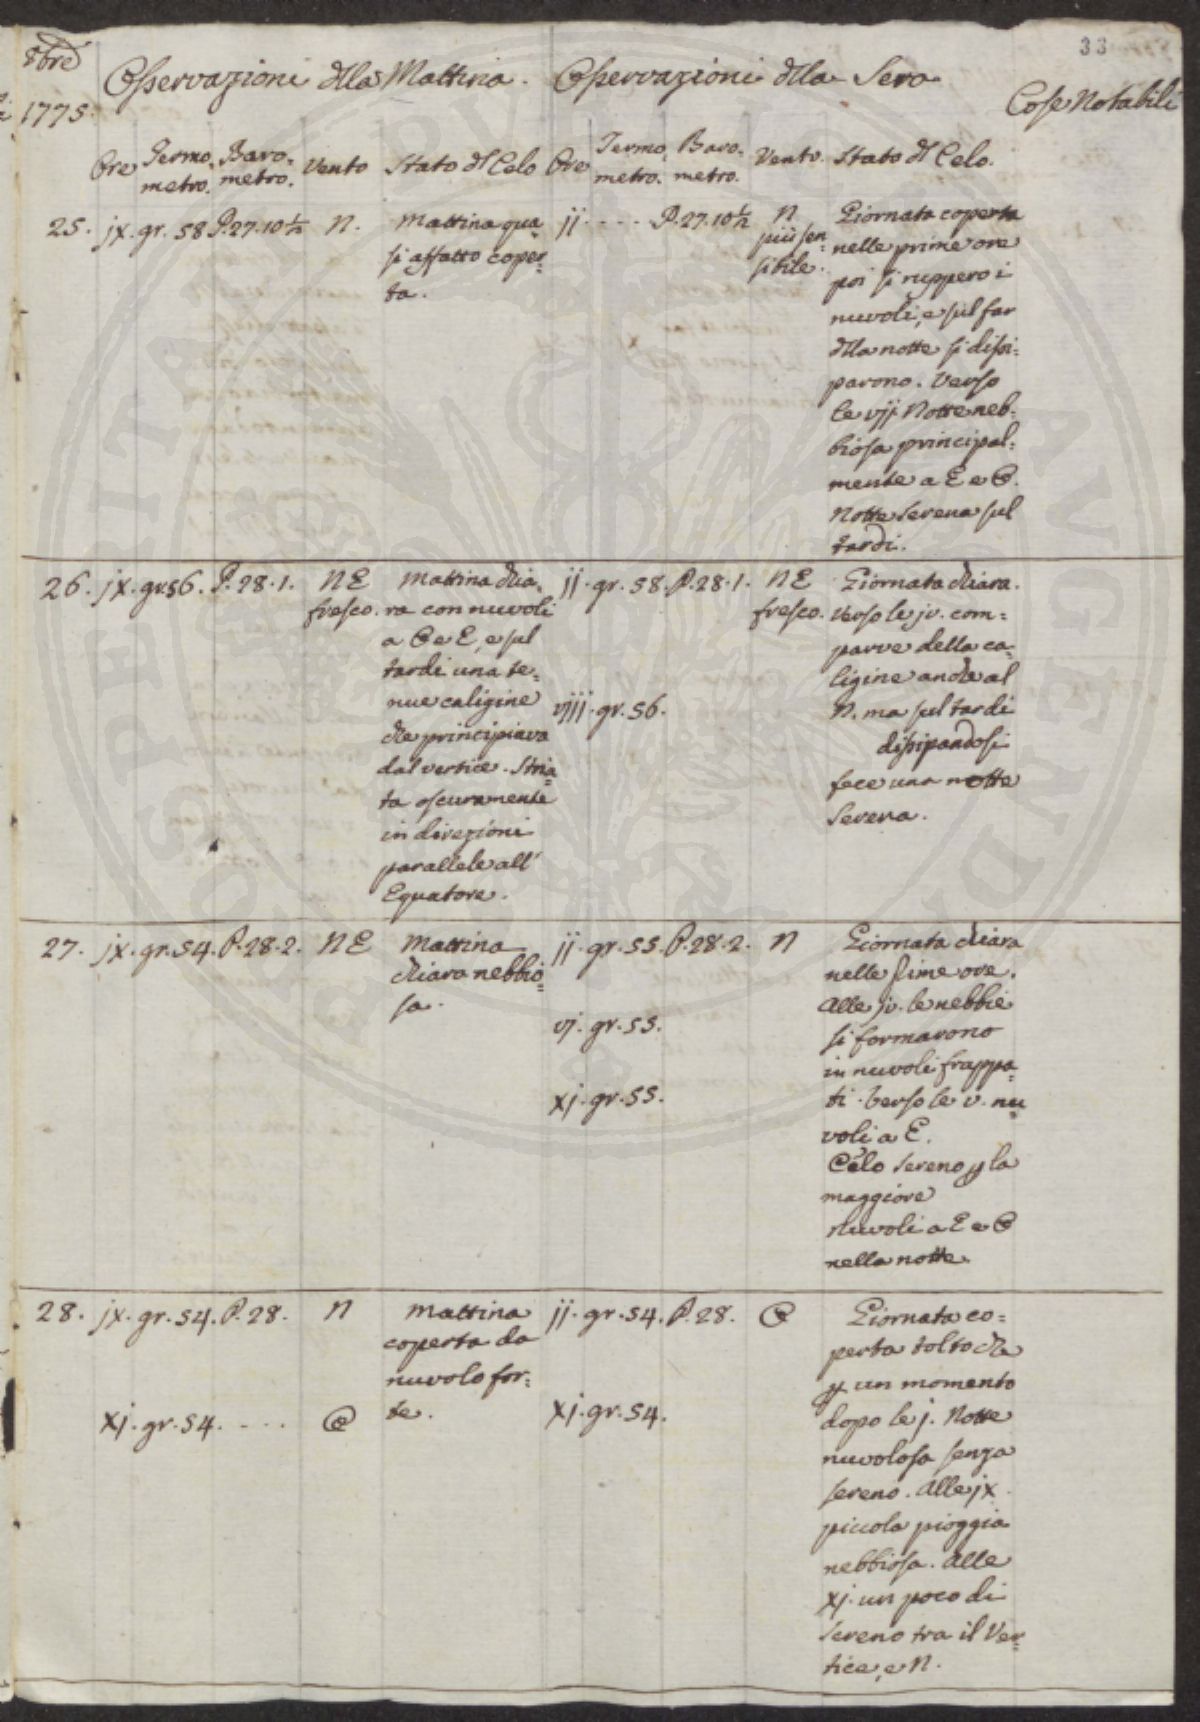 33
8bre
1775.
Osservazioni dlla Mattina. Osservazioni dlla Sera
Cose Notabili
Ore Termo, metro. Baro- metro. Vento Stato dl Celo Ore Termo, metro. Baro- metro. Vento. Stato dl Celo.
25. jx. gr. 58 P. 27. 10 1/2 N.
Mattina qua=
si affatto coper=
ta.
jj. - - - - P. 27. 10 1/2 N
più sen=
sibile.
Giornata coperta
nelle prime ore
poi si ruppero i
nuvoli, e sul far
dlla notte si dissi=
parono. Verso
le vjj. Notte neb=
biosa principal=
mente a E e O.
Notte serena sul
tardi.
26. jx. gr. 56. P. 28. 1. NE
fresco.
Mattina chia=
ra con nuvoli
a O e E, e sul
tardi una te=
nue caligine
che principiava
dal vertice. Stria=
ta oscuramente
in direzioni
parallele all'
Equatore.
jj. gr. 58. P. 28. 1. NE
fresco.
vjjj. gr. 56.
Giornata chiara.
Verso le jv. com=
parve della ca=
ligine anche al
N. ma sul tardi
dissipandosi
fece una notte
serena.
27. jx. gr. 54. P. 28. 2. NE
Mattina
chiara nebbio=
sa.
jj. gr. 55. P. 28. 2. N
vj. gr. 55.
xj. gr. 55.
Giornata chiara
nelle prime ore.
Alle jv. le nebbie
si formarono
in nuvoli frappa=
ti. Verso le v. nu=
voli a E.
Celo sereno p la
maggiore
Nuvoli a E e O
nella notte.
28. jx. gr. 54. P. 28. N
xj. gr. 54. - - - O
Mattina
coperta da
nuvolo for=
te.
jj. gr. 54. P. 28. O
xj. gr. 54.
Giornata co=
perta tolto che
p un momento
dopo le j. Notte
nuvolosa senza
sereno. Alle jx.
piccola pioggia
nebbiosa. Alle
xj. un poco di
sereno tra il Ver=
tice, e N.